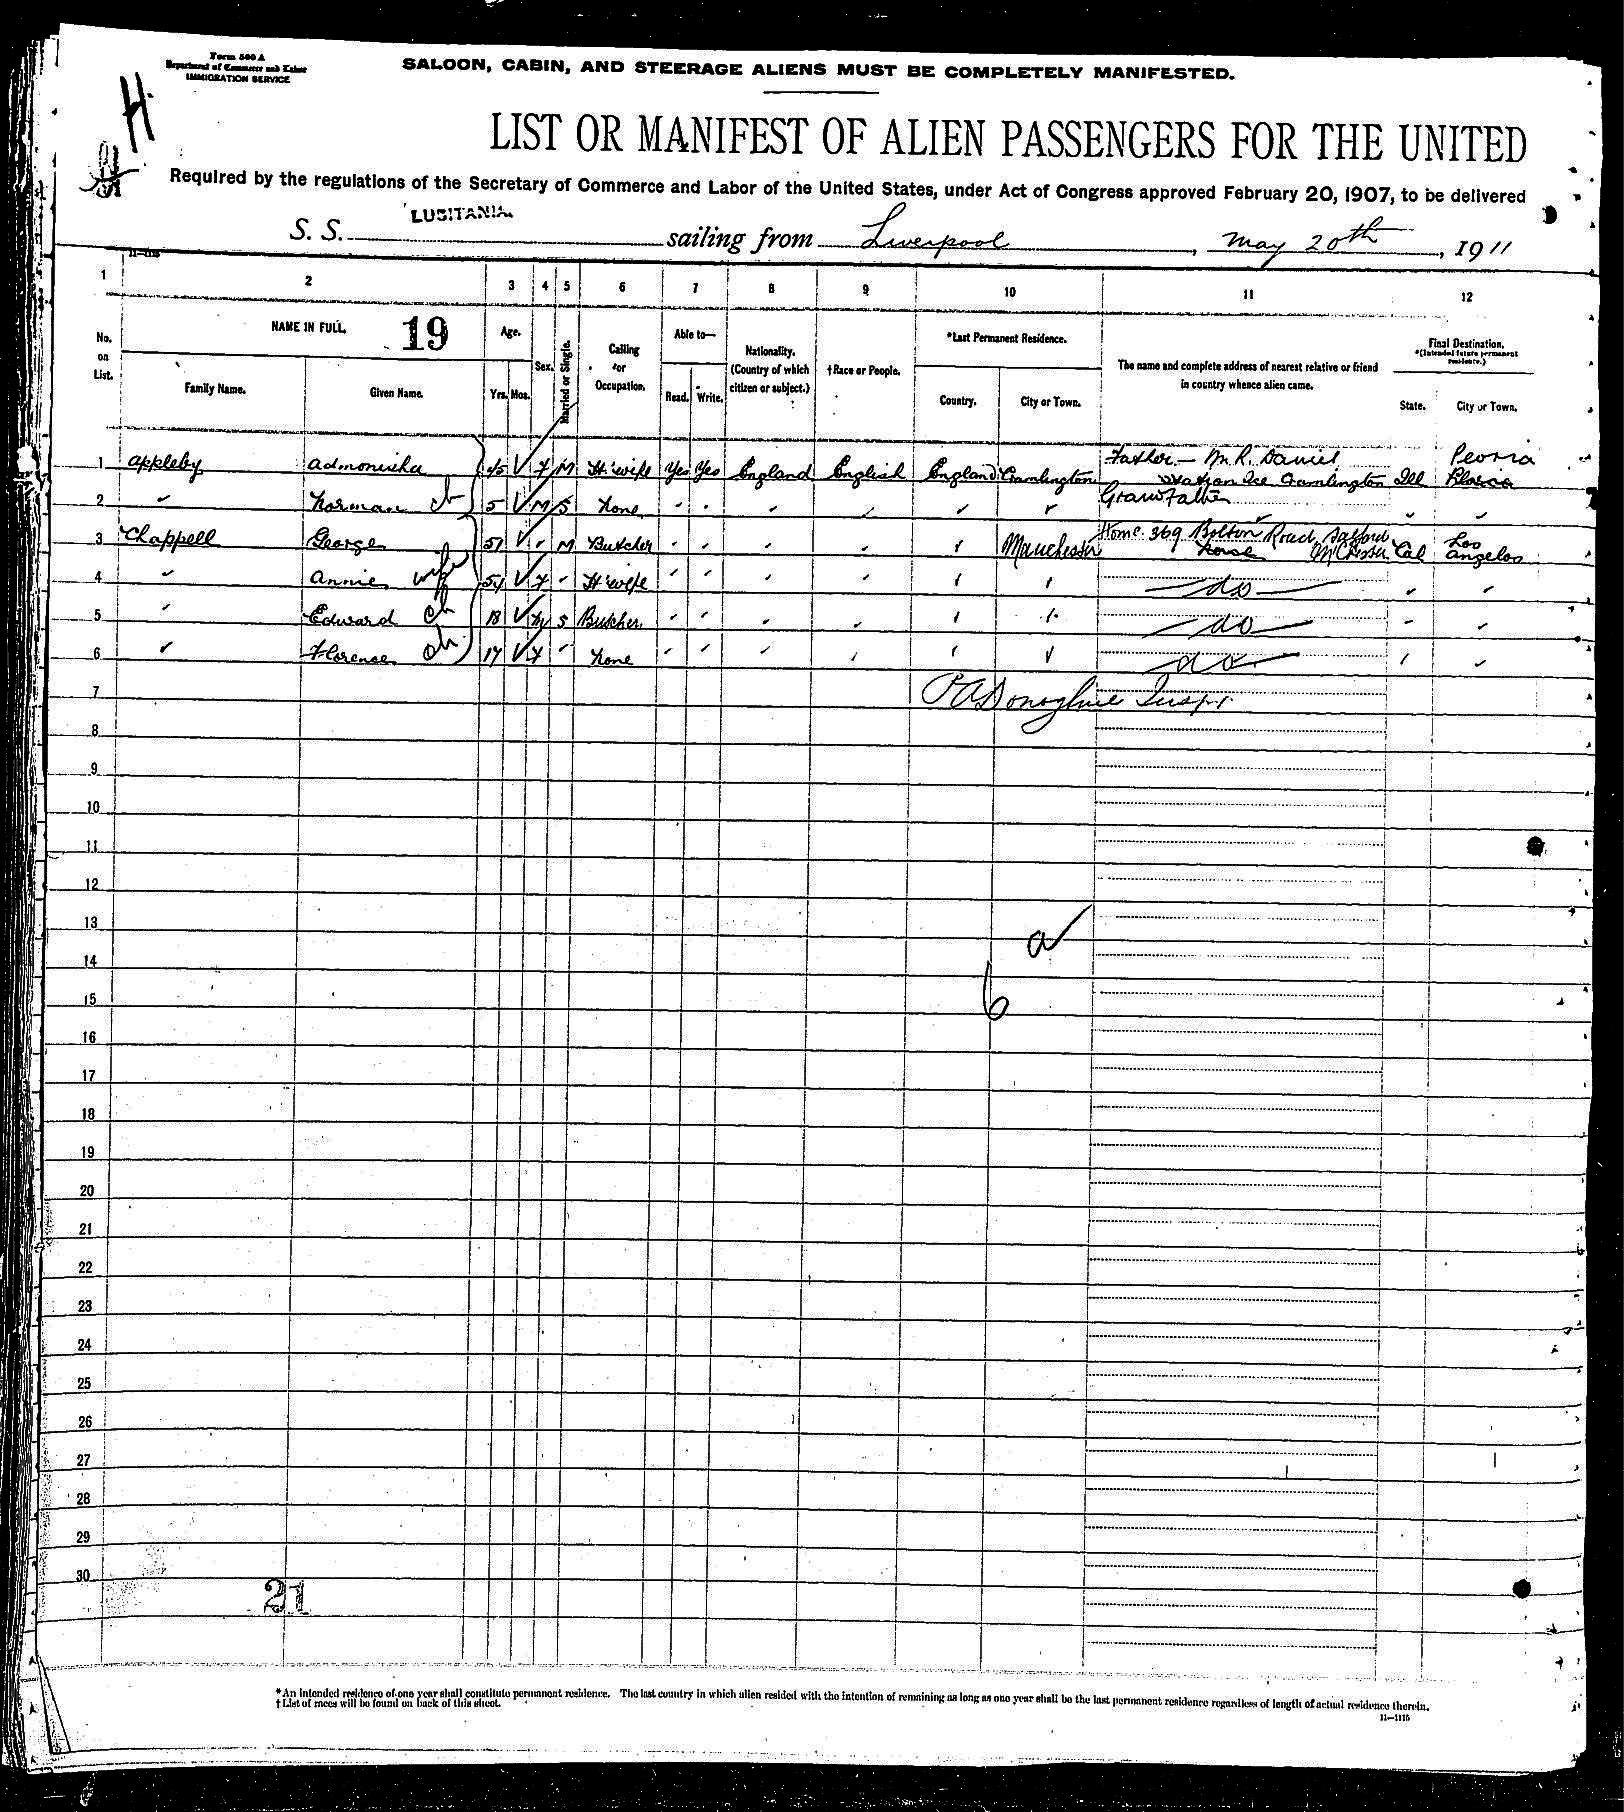 Form 500 A
Department of Commerce and Labor
IMMIGRATION SERVICE
SALOON, CABIN, AND STEERAGE ALIENS MUST BE COMPLETELY MANIFESTED.
H
LIST OR MANIFEST OF ALIEN PASSENGERS FOR THE UNITED
Required by the regulations of the Secretary of Commerce and Labor of the United States, under Act of Congress approved February 20, 1907, to be delivered
S. S. LUSITANIA. sailing from Liverpool, May 20th, 1911
1 2 3 4 5 6 7 8 9 10 11 12
No. on List. NAME IN FULL. 19 Age. Sex. Married or Single. Calling or Occupation. Able to— Nationality. (Country of which citizen or subject.) †Race or People. *Last Permanent Residence. The name and complete address of nearest relative or friend in country whence alien came. Final Destination. *(Intended future permanent residence.)
Family Name. Given Name. Yrs. Mos. Read. Write. Country. City or Town. State. City or Town.
1 Appleby Admonisha F M H'wife Yes Yes England English England Cramlington Father - Mr. R. Daniel Cramlington Ill Peoria
2 Norman ch 5 M S None Grandfather
3 Chappell George 51 M Butcher Manchester Home. 369 Bolton Road, Salford M'Chester Cal Los Angelos
4 Annie wife 54 F H'wife do
5 Edward ch 18 M S Butcher do
6 Florence ch 17 F None do
7 P A Donoghue Inspr.
8
9
10
11
12
13 a
14
15 6
16
17
18
19
20
21
22
23
24
25
26
27
28
29
30
21
*An intended residence of one year shall constitute permanent residence. The last country in which alien resided with the intention of remaining as long as one year shall be the last permanent residence regardless of length of actual residence therein.
†List of races will be found on back of this sheet.
11—1115